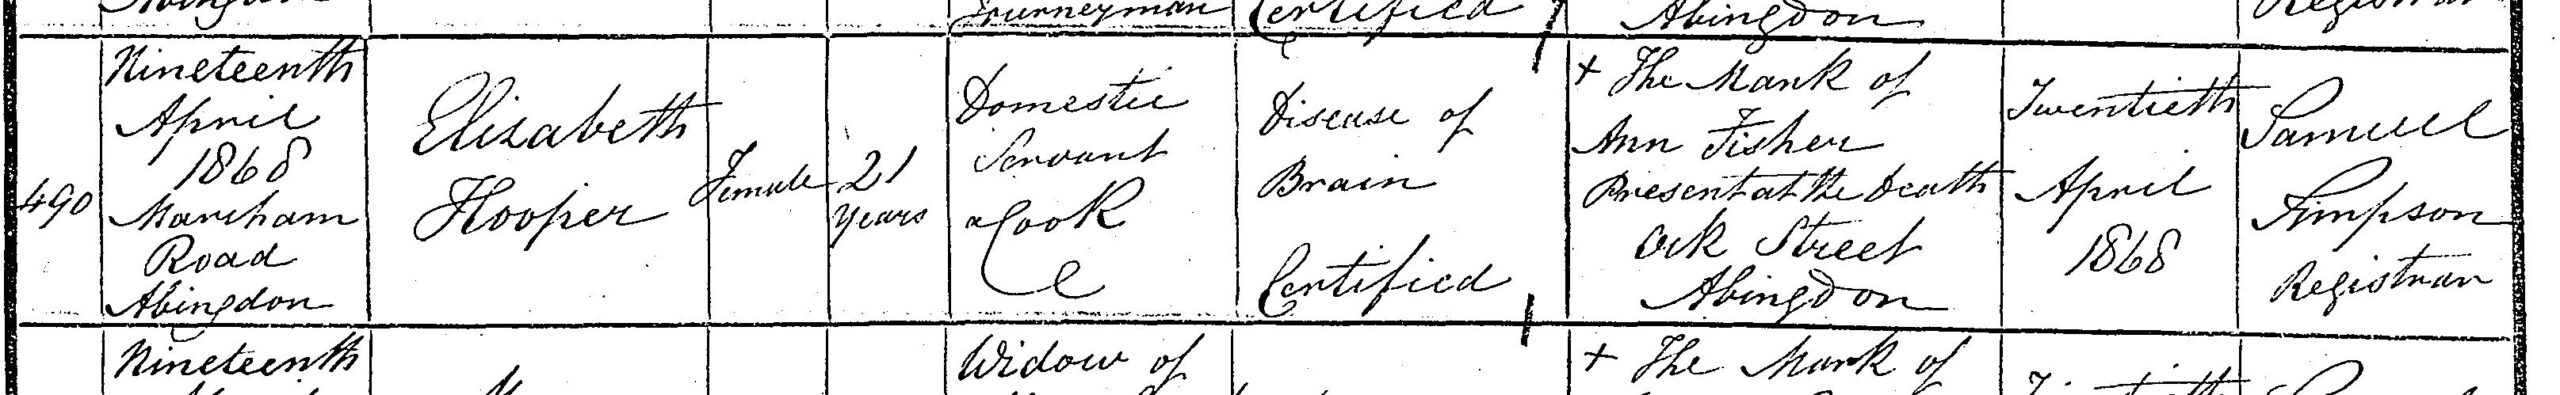 Journeyman
Certified
Abingdon
Registrar
490
Nineteenth
April
1868
Marcham
Road
Abingdon
Elizabeth
Hooper
Female
21
Years
Domestic
Servant
a Cook
Disease of
Brain
Certified
+ The Mark of
Ann Fisher
Present at the Death
Ock Street
Abingdon
Twentieth
April
1868
Samuel
Simpson
Registrar
Nineteenth
Widow of
+ The Mark of